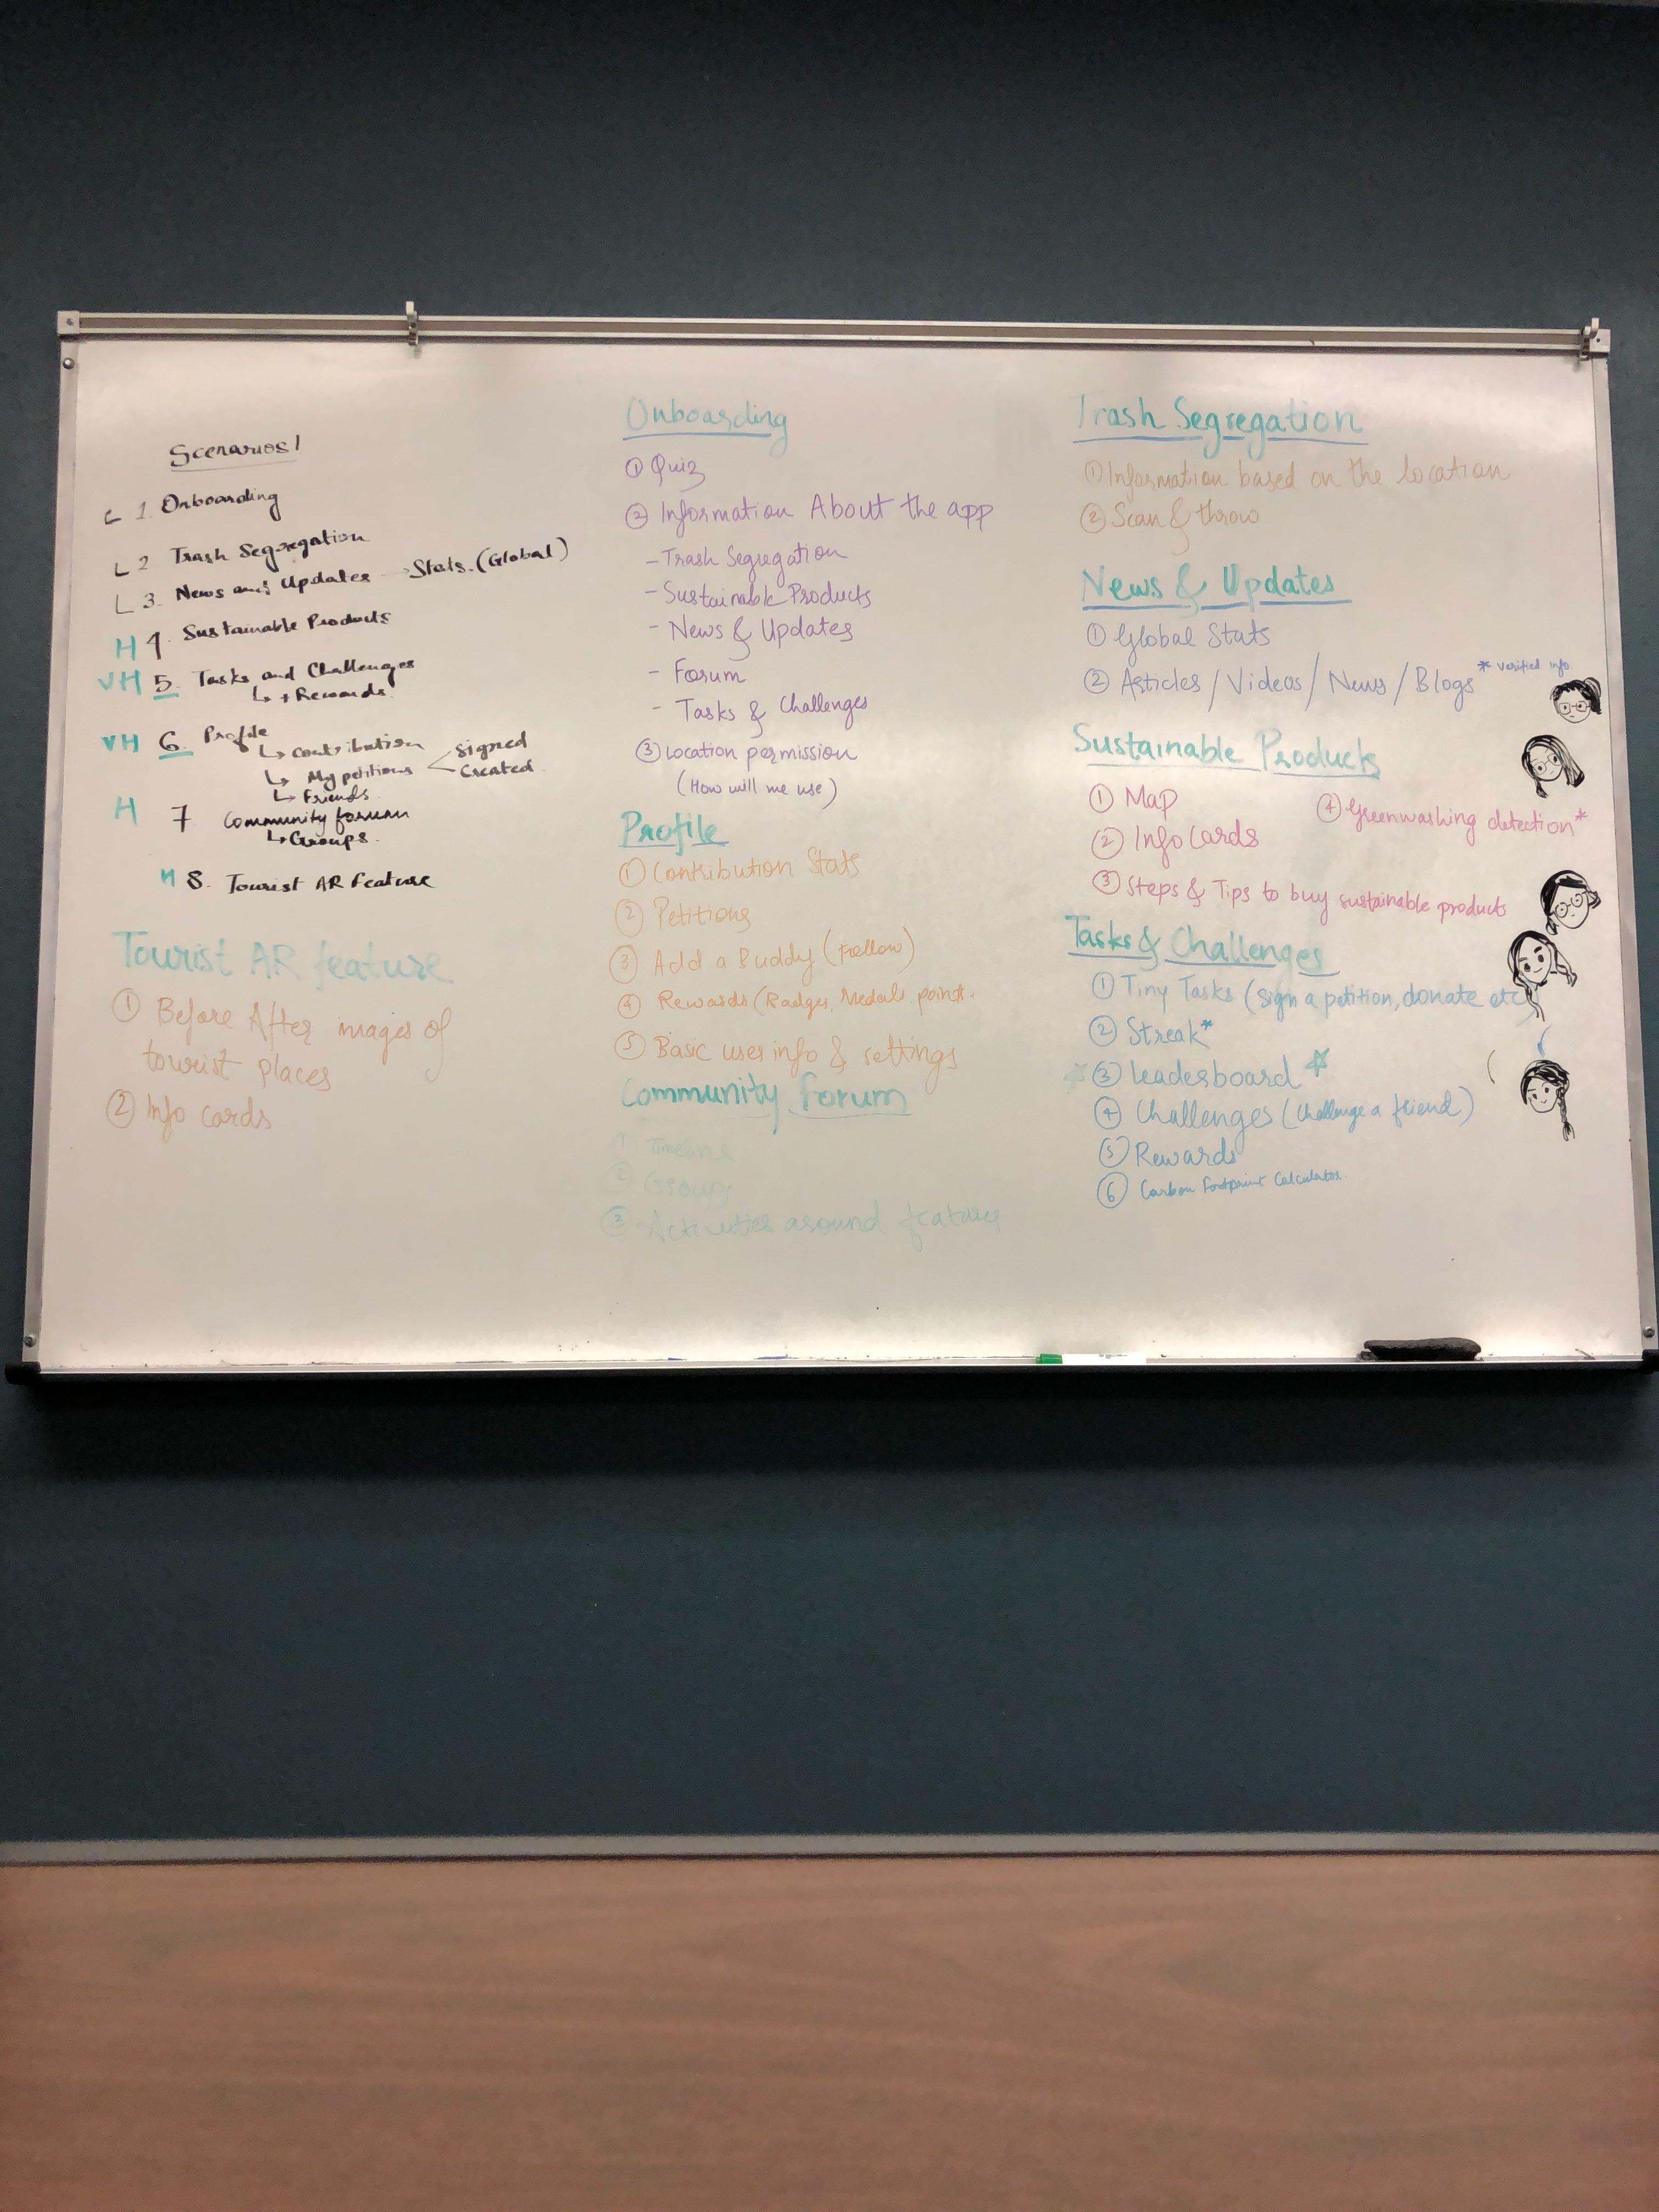 Scenarios /
L 1. Onboarding
L 2 Trash Segregation
L 3. News and Updates → Stats. (Global)
H 4. Sustainable Products
VH 5. Tasks and Challenges
↳ + Rewards.
VH 6. Profile
↳ Contribution
↳ My petitions < Signed
Created
↳ Friends
H 7 Community forum
↳ Groups.
H 8. Tourist AR feature
Tourist AR feature
① Before After images of
tourist places
② Info cards
Onboarding
① Quiz
② Information About the app
- Trash Segregation
- Sustainable Products
- News & Updates
- Forum
- Tasks & Challenges
③ Location permission
(How will me use)
Profile
① Contribution Stats
② Petitions
③ Add a Buddy (Follow)
④ Rewards (Badges, Medals, points.
⑤ Basic user info & settings
Community forum
1 Timeline
② Groups
③ Activities around features
Trash Segregation
① Information based on the location
② Scan & throw
News & Updates
① Global Stats
② Articles / Videos / News / Blogs * verified info.
Sustainable Products
① Map
④ Greenwashing detection*
② Info Cards
③ Steps & Tips to buy sustainable products
Tasks & Challenges
① Tiny Tasks (Sign a petition, donate etc)
② Streak*
☆ ③ Leaderboard ☆
④ Challenges (Challenge a friend)
⑤ Rewards
⑥ Carbon Footprint Calculator.